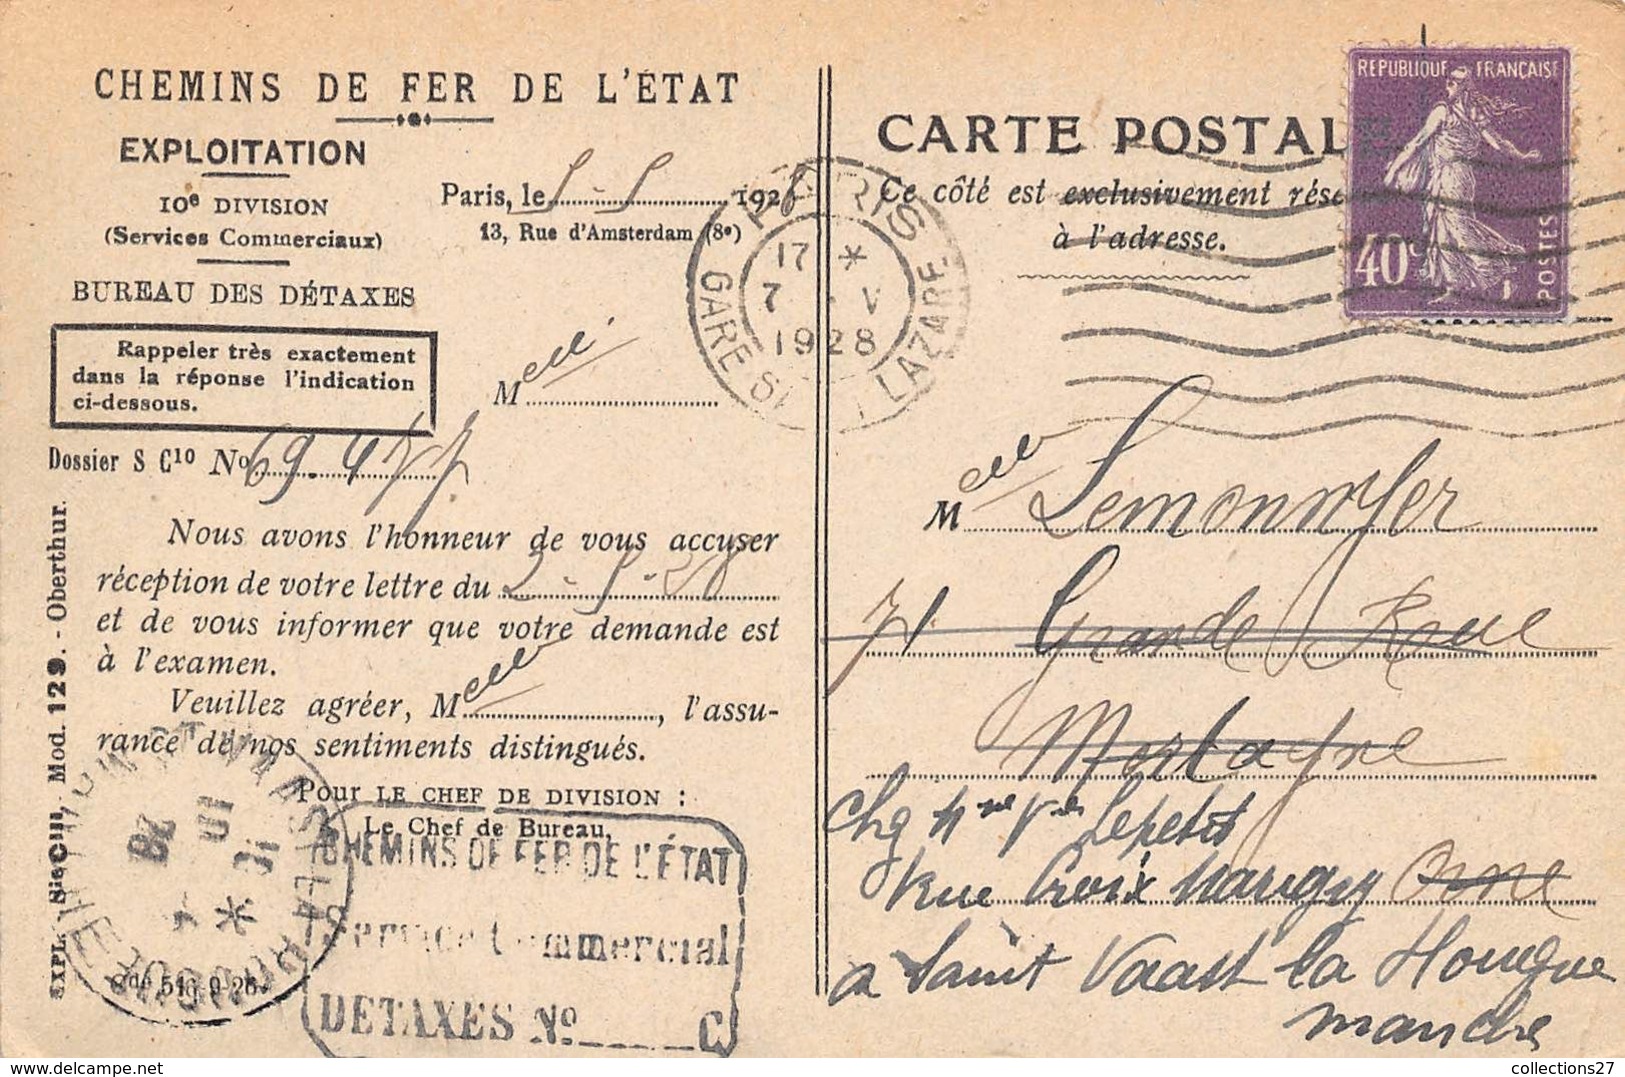 CHEMINS DE FER DE L'ÉTAT
EXPLOITATION
10e DIVISION
(Services Commerciaux)
BUREAU DES DÉTAXES
Paris, le 5-5 1928
13, Rue d'Amsterdam (8e)
Rappeler très exactement
dans la réponse l'indication
ci-dessous.
Melle
Dossier S C10 No 69.477
Nous avons l'honneur de vous accuser
réception de votre lettre du 2-5-28
et de vous informer que votre demande est
à l'examen.
Veuillez agréer, Melle, l'assu-
rance de nos sentiments distingués.
Pour LE CHEF DE DIVISION :
Le Chef de Bureau,
CHEMINS DE FER DE L'ÉTAT
Service Commercial
DETAXES No C
EXPL. Sie CIII, Mod. 129. - Oberthur.
PARIS
GARE St LAZARE
17 *
7 - V
1928
CARTE POSTALE
Ce côté est exclusivement rése
à l'adresse.
REPUBLIQUE FRANÇAISE
40c
POSTES
Melle Lemonnyer
71 Grande Rue
Mortagne
Chg Mme Ve Lepetit
Rue Croix Orne
a Saint Vaast la Hougue
manche
collections27